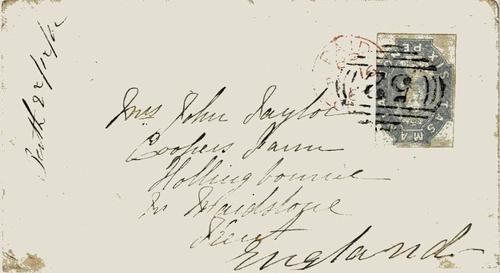 Mrs John Taylor
Coopers Farm
Hollingbourne
Nr Maidstone
Kent
England
PAID
TASMA
PE
52